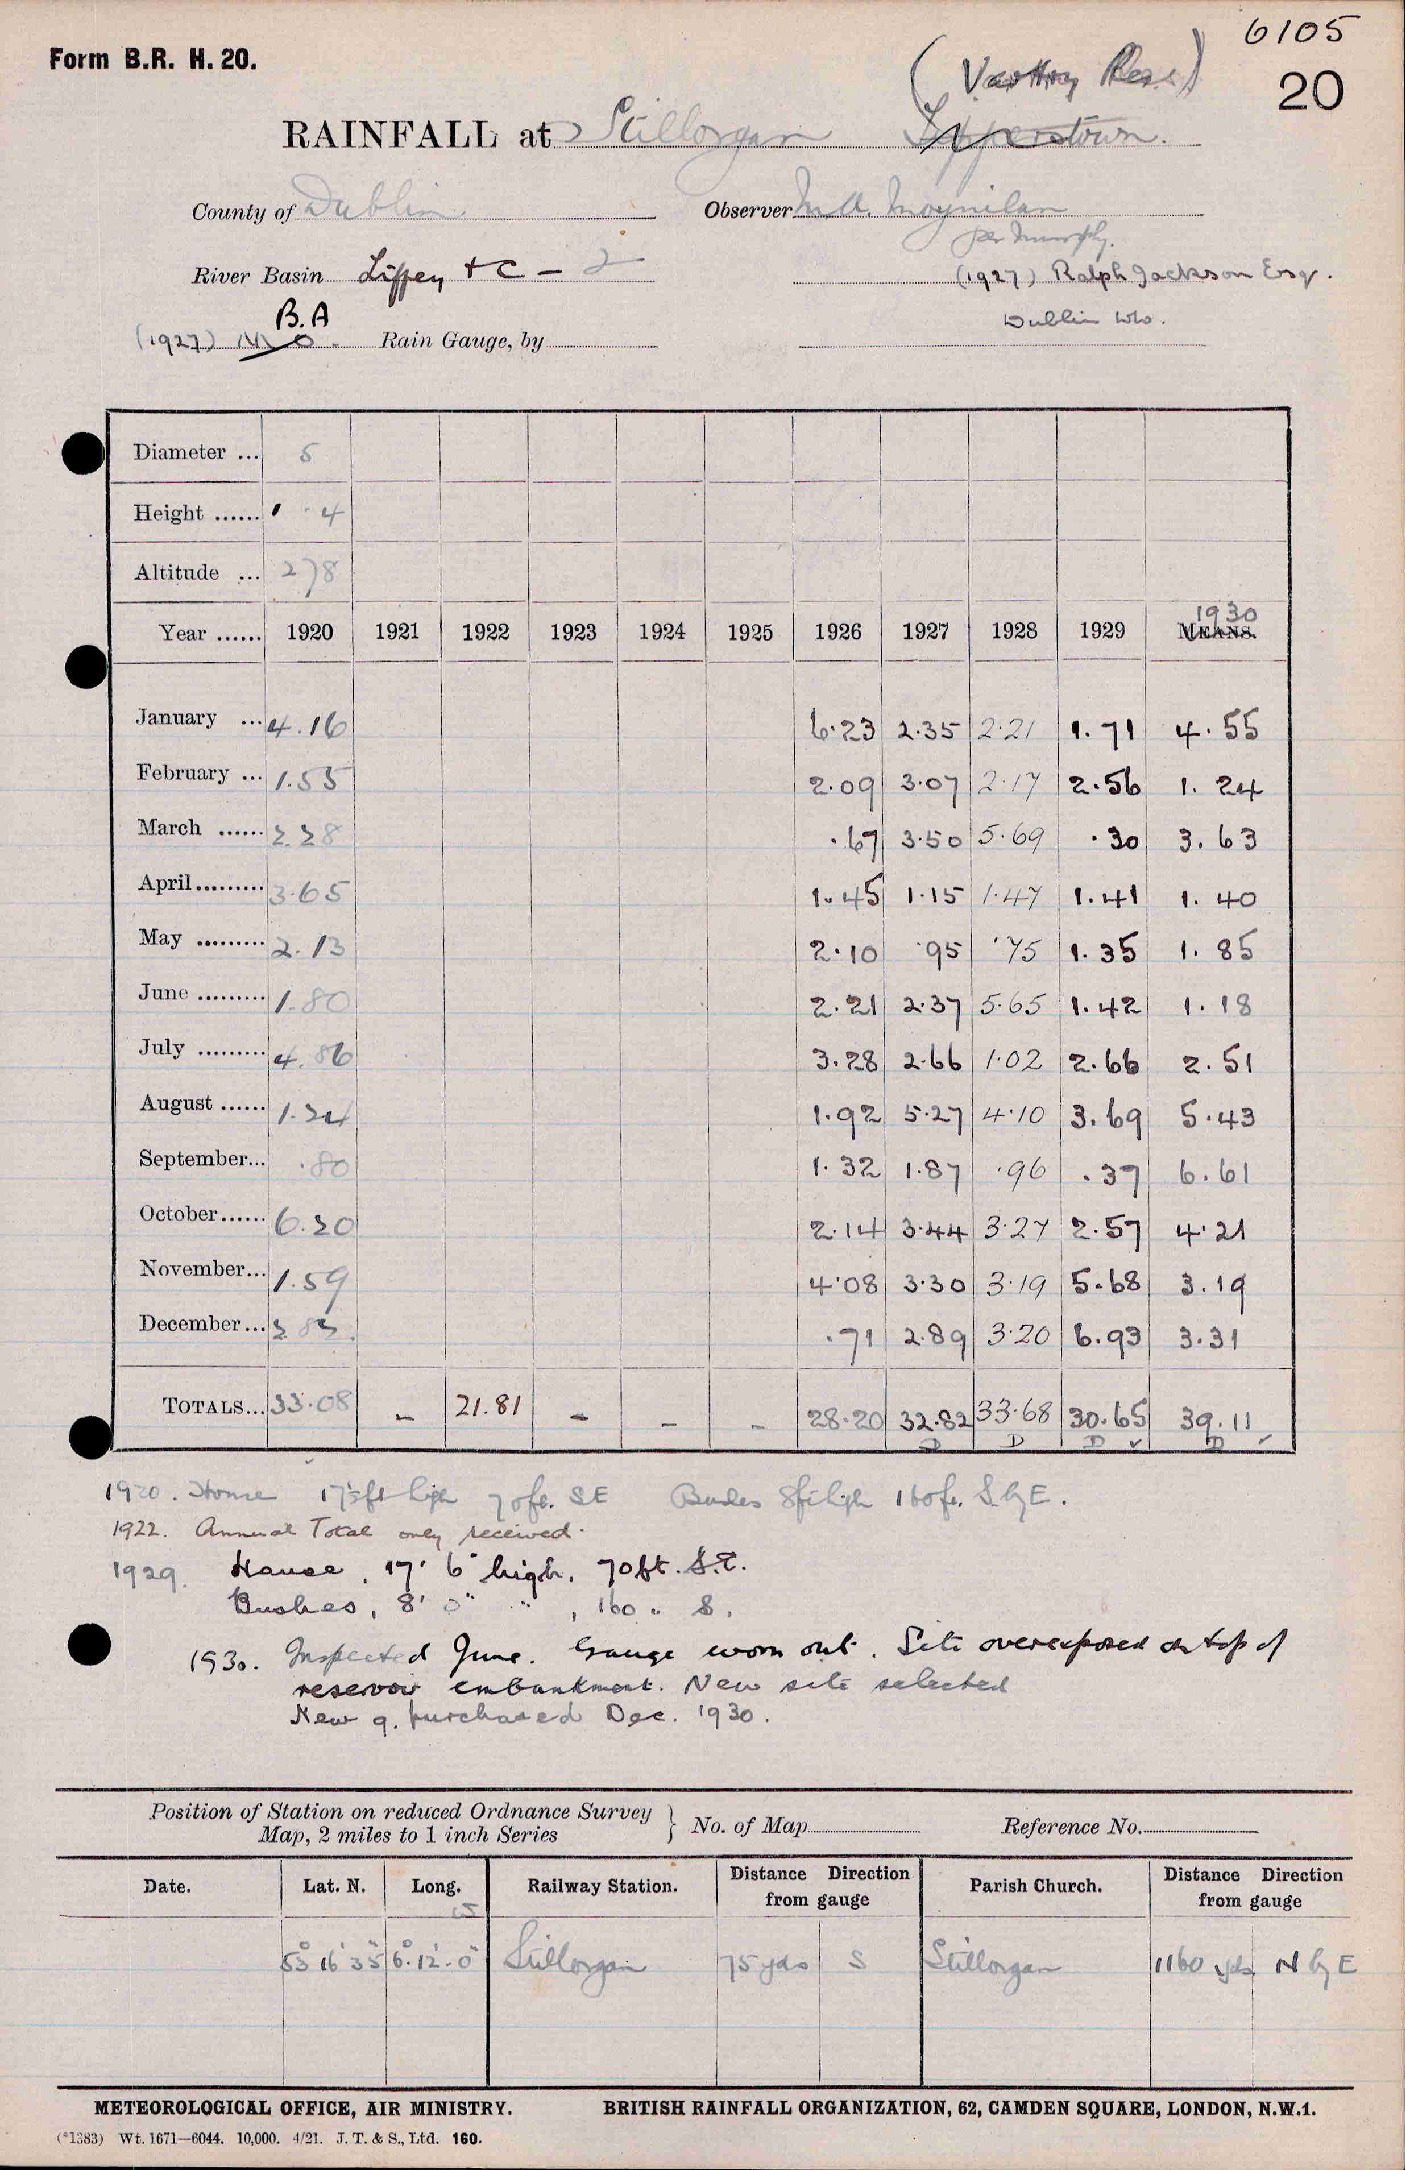 6105
Form B.R. H. 20.
(Vartry Res)
20
RAINFALL at Stillorgan Lepperstown.
County of Dublin
Observer M.A. Moynihan
per Murphy.
River Basin Liffey + C - 2
(1927) Ralph Jackson Esqr.
B.A
Dublin WW.
(1927) M O. Rain Gauge, by
Diameter ... 5
Height ...... ' .4
Altitude ... 278
1930
Year ...... 1920 1921 1922 1923 1924 1925 1926 1927 1928 1929 MEANS.
January ... 4.16 6.23 2.35 2.21 1.71 4.55
February ... 1.55 2.09 3.07 2.17 2.56 1.24
March ...... 2.28 .67 3.50 5.69 .30 3.63
April......... 3.65 1.45 1.15 1.47 1.41 1.40
May ......... 2.13 2.10 .95 .75 1.35 1.85
June ......... 1.80 2.21 2.37 5.65 1.42 1.18
July ......... 4.86 3.28 2.66 1.02 2.66 2.51
August ...... 1.24 1.92 5.27 4.10 3.69 5.43
September... .80 1.32 1.87 .96 .37 6.61
October...... 6.20 2.14 3.44 3.27 2.57 4.21
November... 1.59 4.08 3.30 3.19 5.68 3.19
December... 2.82 .71 2.89 3.20 6.93 3.31
TOTALS... 33.08 - 21.81 - - - 28.20 32.82 33.68 30.65 39.11
D D D ✓ D ✓
1920. House 17½ft high 70ft. SE Bushes 8ft high 160ft. S by E.
1922. Annual Total only received.
1929. House, 17' 6" high, 70ft. S.E.
Bushes, 8' 0" " , 160 " S.
1930. Inspected June. Gauge worn out. Site overexposed on top of
reservoir embankment. New site selected
New g. purchased Dec. 1930.
Position of Station on reduced Ordnance Survey
Map, 2 miles to 1 inch Series } No. of Map Reference No.
Date. Lat. N. Long. W Railway Station. Distance Direction from gauge Parish Church. Distance Direction from gauge
53° 16' 35" 6° 12' 0" Stillorgan 75 yds S Stillorgan 1160 yds N by E
METEOROLOGICAL OFFICE, AIR MINISTRY. BRITISH RAINFALL ORGANIZATION, 62, CAMDEN SQUARE, LONDON, N.W.1.
(*1383) Wt. 1671—6044. 10,000. 4/21. J. T. & S., Ltd. 160.